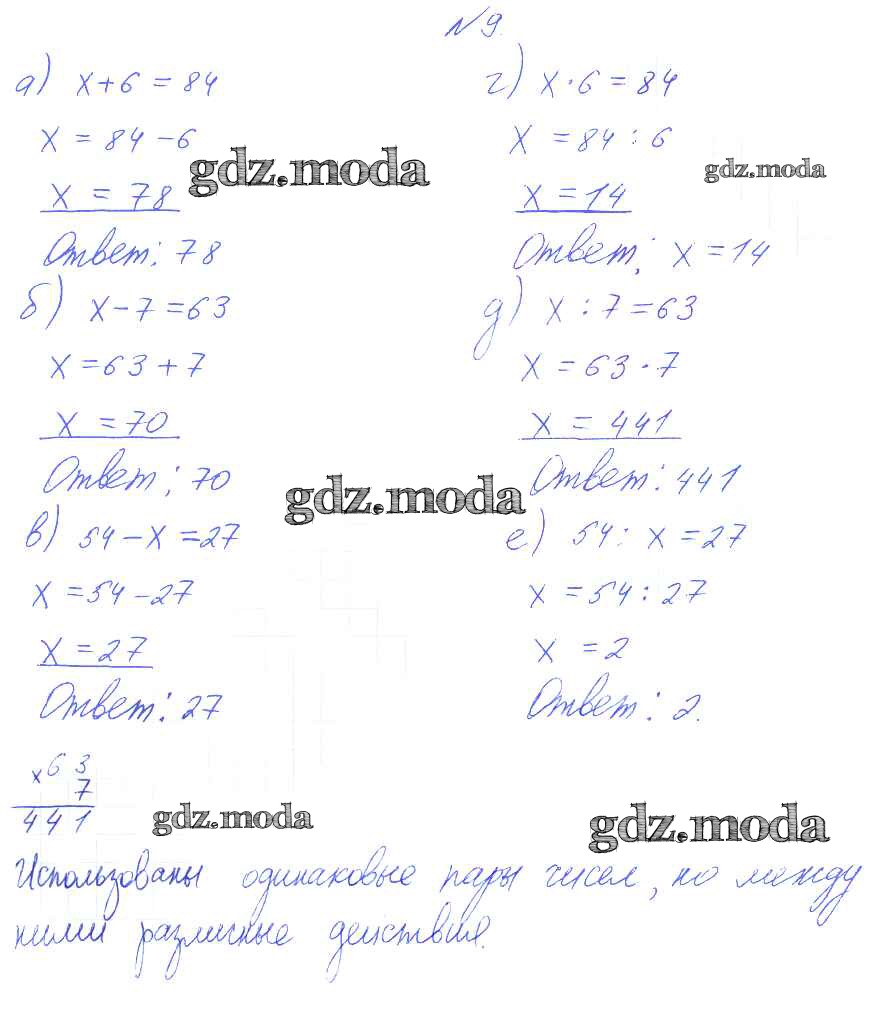 № 9.
а) x + 6 = 84
x = 84 - 6
x = 78
Ответ: 78
б) x - 7 = 63
x = 63 + 7
x = 70
Ответ: 70
в) 54 - x = 27
x = 54 - 27
x = 27
Ответ: 27
x 63
7
441
г) x · 6 = 84
x = 84 : 6
x = 14
Ответ: x = 14
д) x : 7 = 63
x = 63 · 7
x = 441
Ответ: 441
е) 54 : x = 27
x = 54 : 27
x = 2
Ответ: 2.
Использованы одинаковые пары чисел, но между
ними различные действия.
gdz.moda
gdz.moda
gdz.moda
gdz.moda
gdz.moda